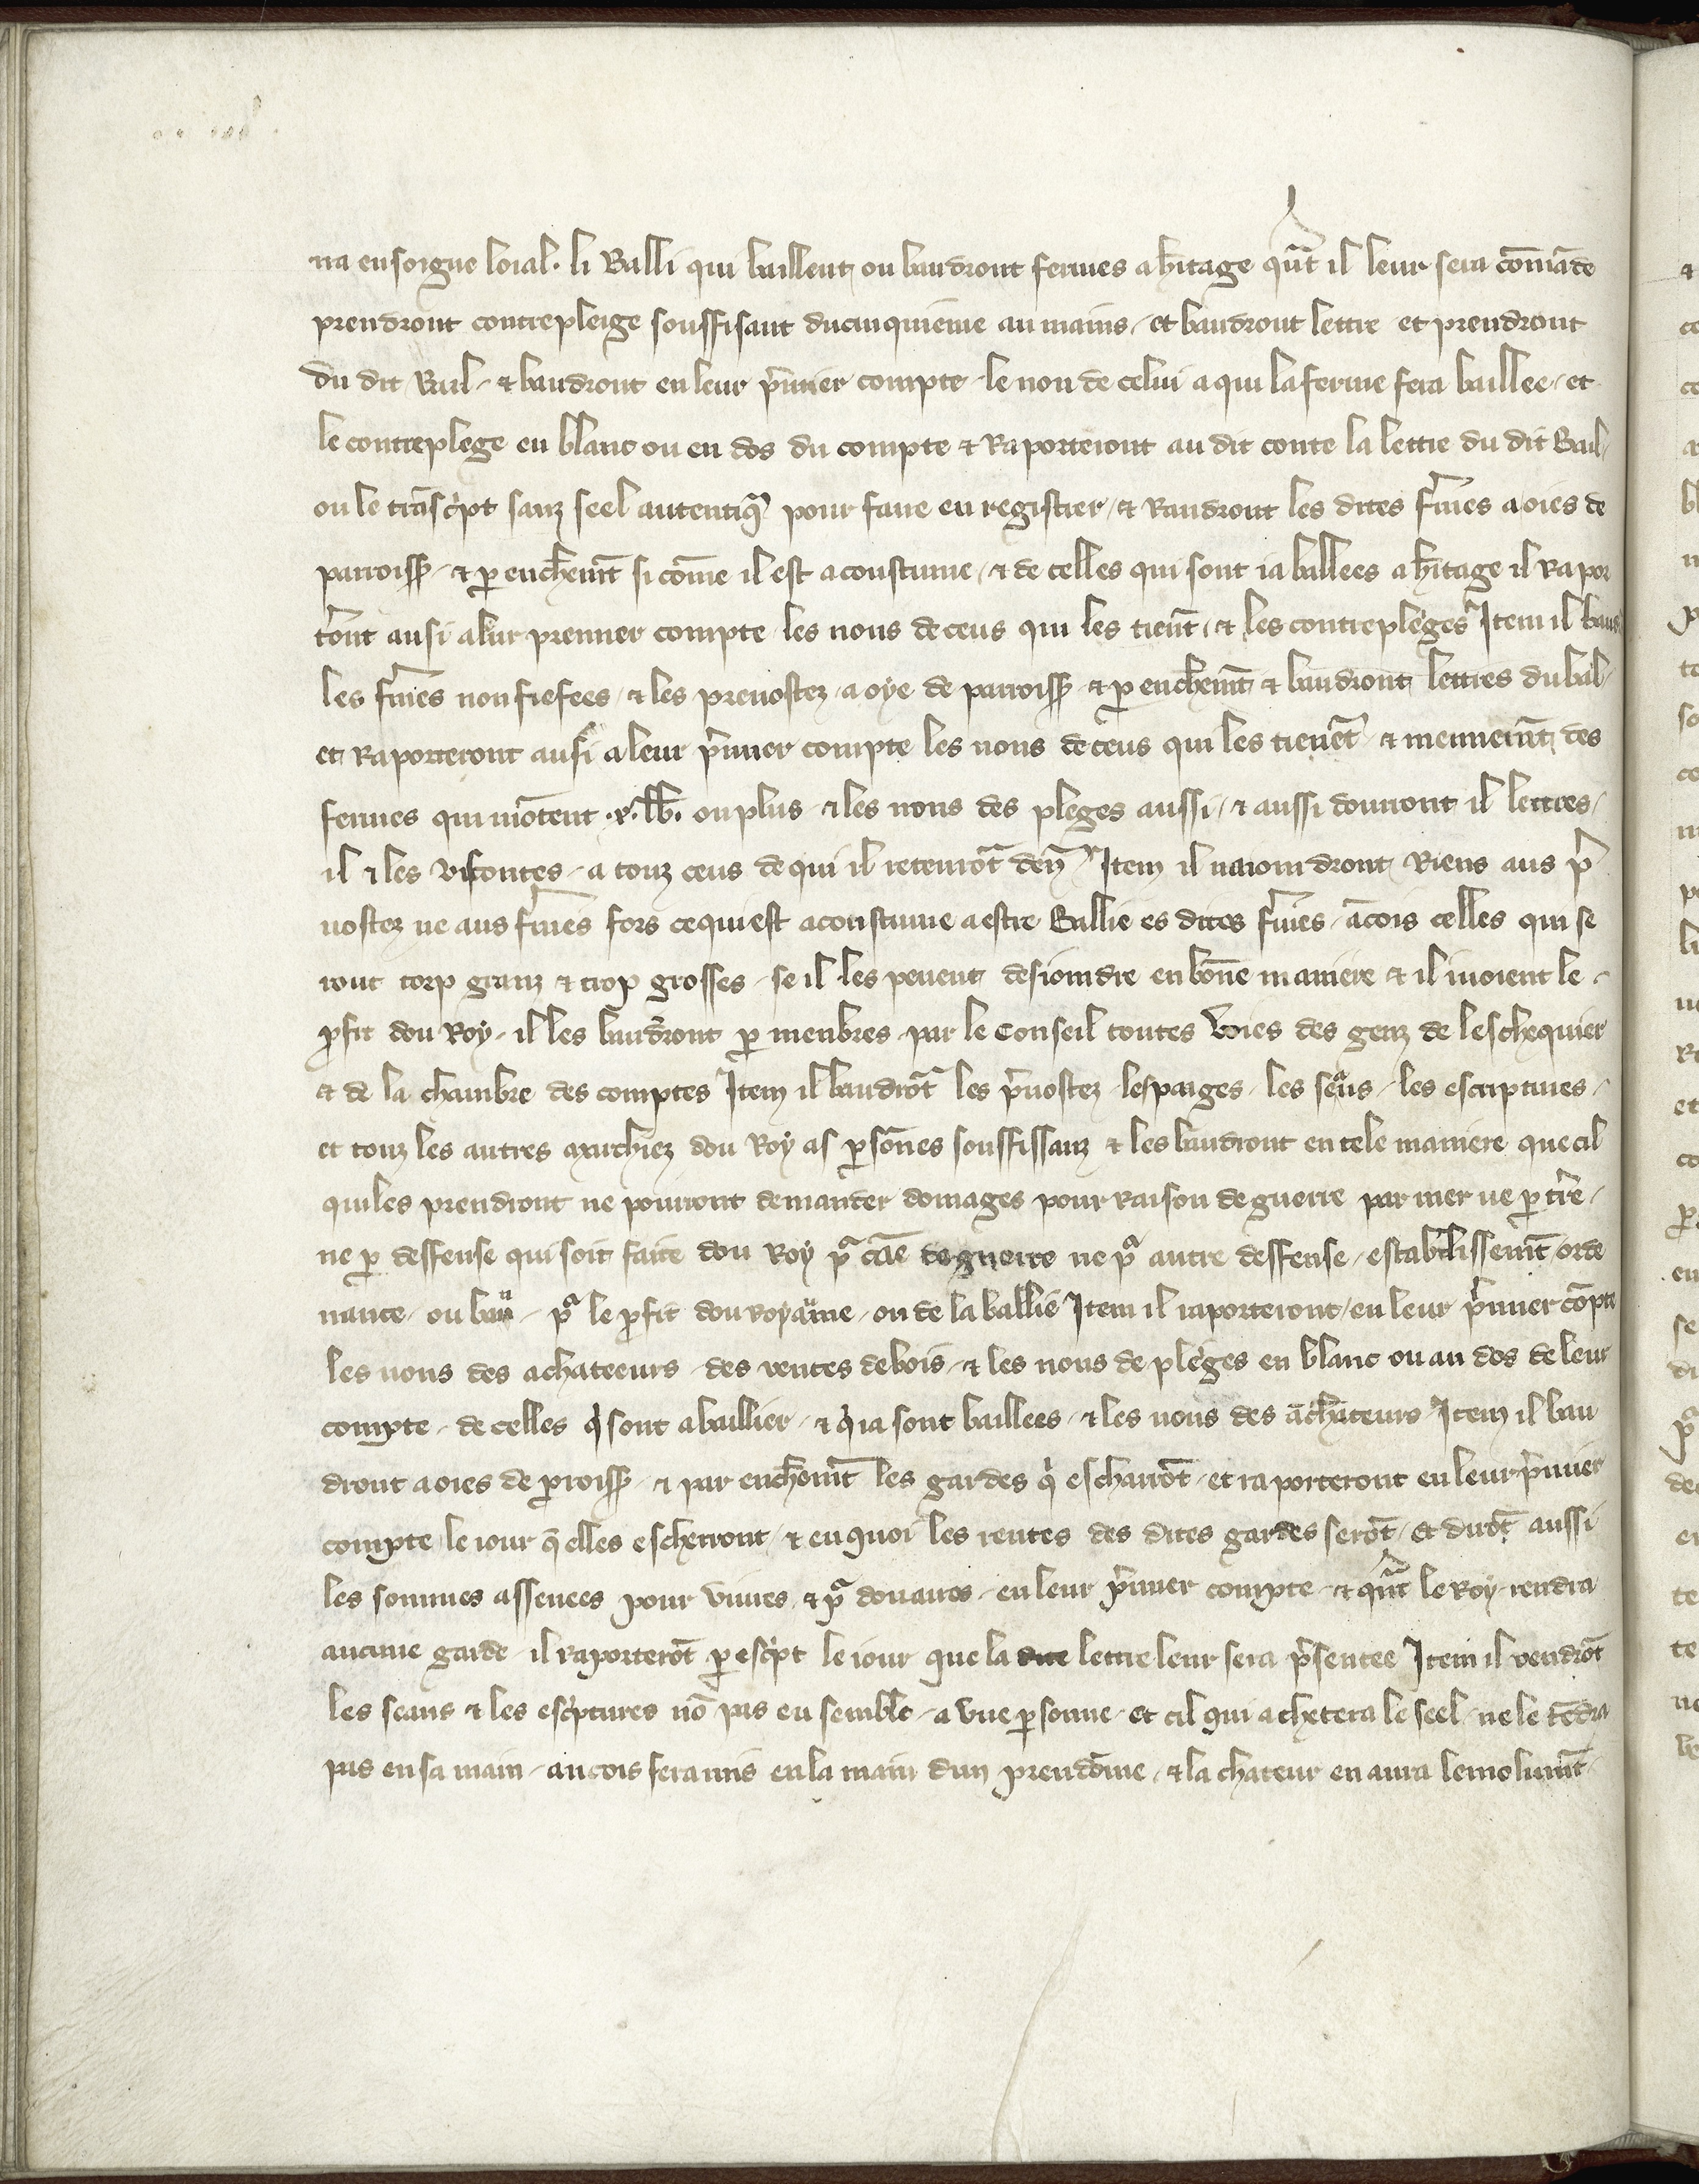 na ensoigne loial. li Balli qui baillent ou baudront fermes a h̄itage qn̄t il leur sera cōmāde
prendront contrepleige souffisant du cinquieme au mains et baudront lettre et prendront
du dit Bail & baudront en leur p̄mier compte le non de celui a qui la ferme sera baillee et
le contreplege en blanc ou en dos du compte & Raporteront au dit conte la lettre du dit Bail
ou le trāsc̍pt sanz seel autentiq̄ pour faire en registrer & Raudront les dites f̄mes a oies de
parroiss̄ & p̱ enchem̄t si cōme il est acoustume & de celles qui sont ia ballees a h̄itage il Rapor
t̄ont ausi a leur premier compte les nons de ceus qui les tien̄t & les contrepleges Item il baud
les f̄mes non fiefees & les preuostez a oye de parroiss̄ & p̱ enchem̄t & baudront lettres du bal
et Raporteront ausi a leur p̍mier compte les nons de ceus qui les tienēt & mennerūt des
fermes qui mōtent .x. lb̄. ou plus & les nons des pleges aussi & aussi donront il lettres
il & les viscontes a touz ceus de qui il reteurōt den̄ Item il naioindront Riens aus p̍
uostez ne aus f̄mes fors ce qui est acoustume a estre Ballie es dites f̄mes ācois celles qui se
ront torp granz & trop grosses se il les peuent desioindre en bōne maniere & il uoient le
p̱fit dou Roy il les baudront p̱ menbres par le Conseil toutes voies des genz de leschequier
& de la chambre des comptes Item il baudrōt les p̍uostez les paiges les seaus les escriptures
et touz les autres marchiez dou Roy as p̱sōnes souffissanz & les baudront en tele maniere que cil
qui les prendront ne pourront demander domages pour raison de guerre par mer ne p̱ t̄re
ne p̱ deffense qui soit faite dou Roy pͣ cāe de guerre ne pͣ autre deffense establissem̄t orde
nance ou ban pͣ le p̱fit dou royaume ou de la ballie Item il raporteront en leur p̍mier cōpte
les nons des achateeurs des ventes de bois & les nons de pleges en blanc ou au dos de leur
compte de celles q̍ sont a baillier & q̍ ia sont baillees & les nons des achateurs Item il bau
dront a oies de p̱roiss̄ & par enchem̄t les gardes q̍ escharrōt et raporteront en leur p̍mier
compte le iour q̄ elles escherront & en quoi les rentes des dites gardes serōt et dirōt aussi
les sommes assenees pour viures & pͣ douaires en leur p̍mier compte & qn̄t le Roy rendra
aucune garde il raporterōt p̱ esc̍pt le iour que la dite lettre leur sera p̍sentee Item il vendrōt
les seaus & les esc̍ptures nō pas en semble a vne p̱sonne et cil qui achetera le seel ne le tēdra
pas en sa main ancois sera mis en la main dun preudōme & lachateur en aura lemolum̄t